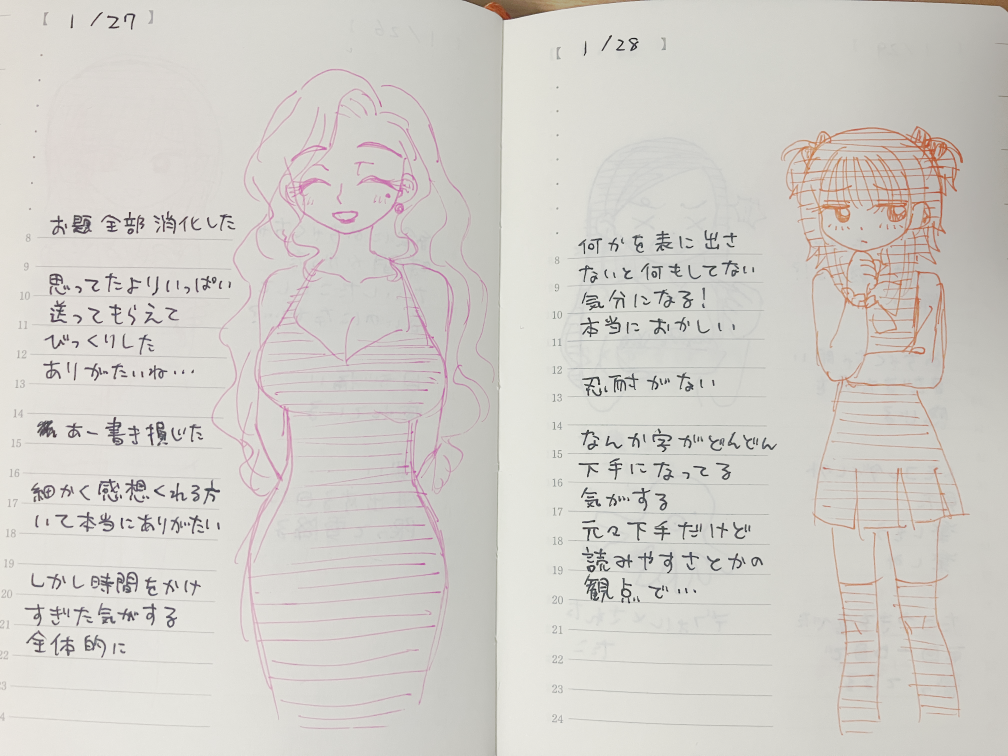 【 1/27 】
お題全部消化した
思ってたよりいっぱい
送ってもらえて
びっくりした
ありがたいね…
あー書き損じた
細かく感想くれる方
いて本当にありがたい
しかし時間をかけ
すぎた気がする
全体的に
8
9
10
11
12
13
14
15
16
17
18
19
20
21
22
23
【 1/28 】
何かを表に出さ
ないと何もしてない
気分になる!
本当におかしい
忍耐がない
なんか字がどんどん
下手になってる
気がする
元々下手だけど
読みやすさとかの
観点で…
8
9
10
11
12
13
14
15
16
17
18
19
20
21
22
23
24